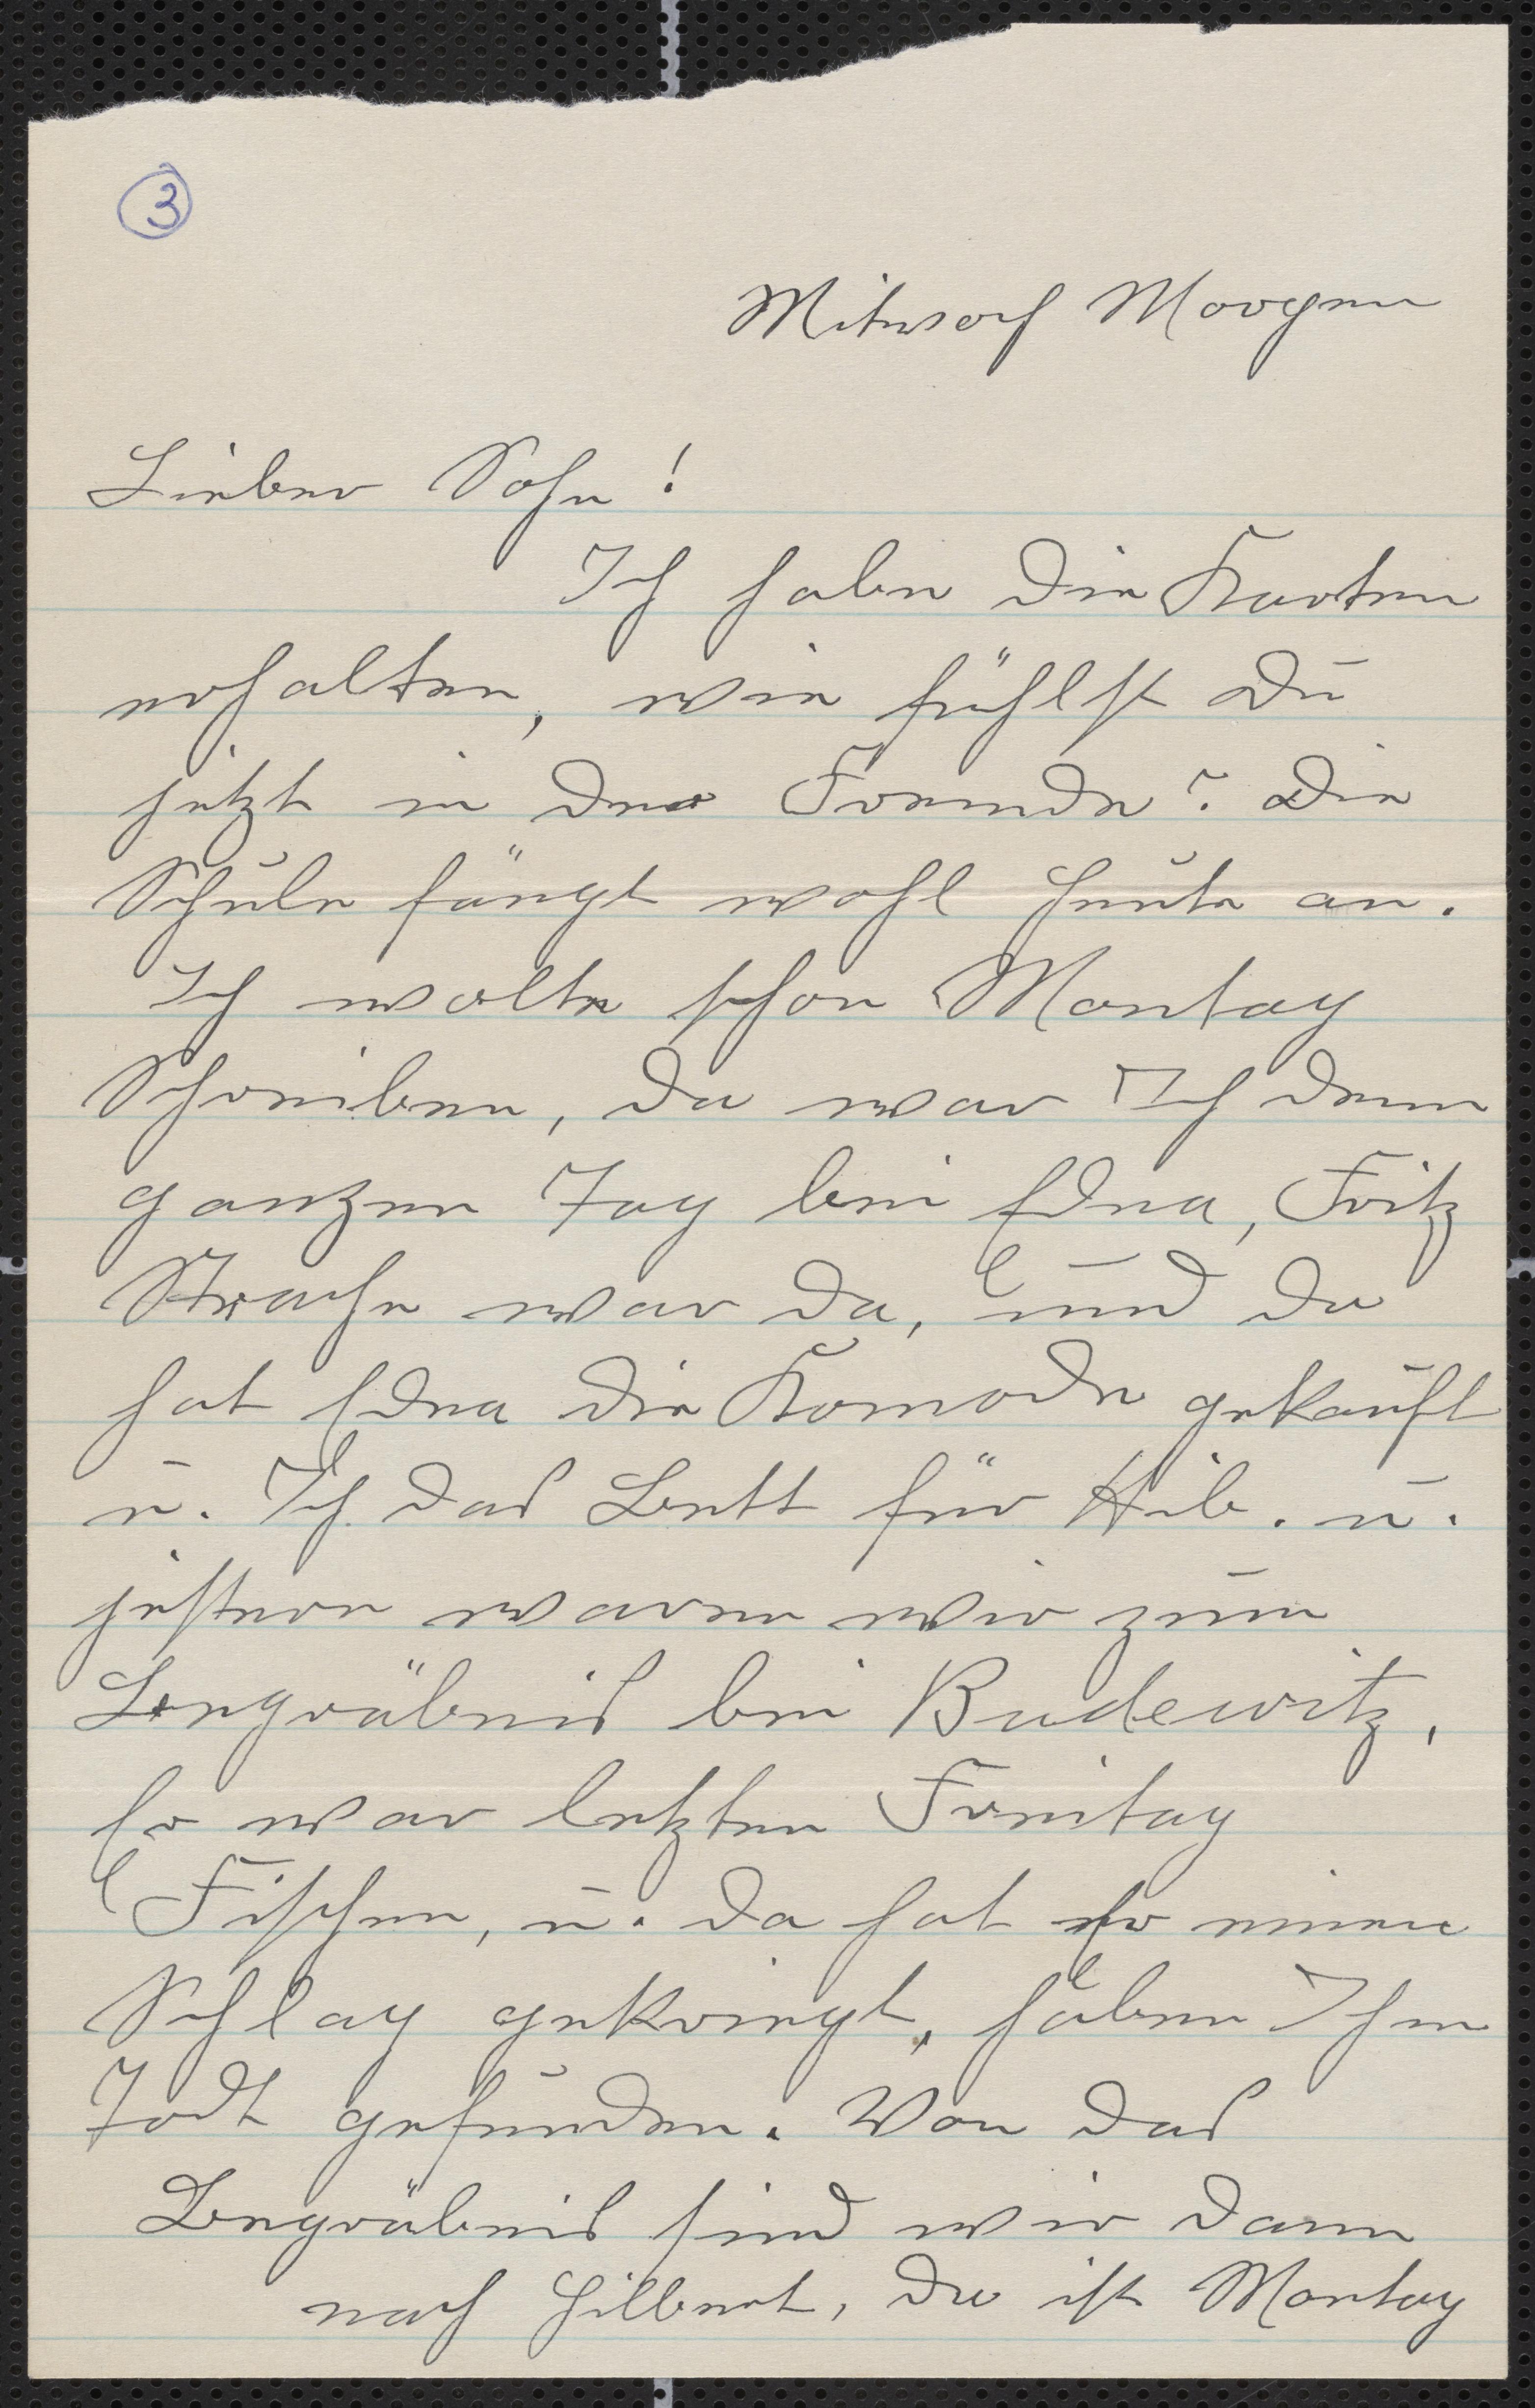 3
Mitwoch Morgen
Lieber Sohn!
Ich habe die Karten
erhalten, wie fühlst du
jetzt in der Fremde? die
Schule fängt wohl heute an.
Ich wolte schon Montag
Schreiben, da war Ich denn
ganzen Tag bei Edna, Fritz
Strache war da, und da
hat Edna die Komode gekauft
u. Ich das Bett für Hib. u.
jestern waren wir zum
Begräbnis bei Budewitz,
Er war letzten Freitag
Fischen, u. da hat Er einen
Schlag gekriegt, haben Ihn
Todt gefunden. Von das
Begräbnis sind wir dann
nach Hilbert, da ist Montag